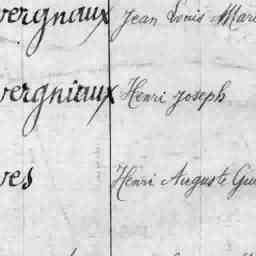 vergnaux Jean Louis Mari
vergniaux Henri Joseph
ves Henri Auguste Gu